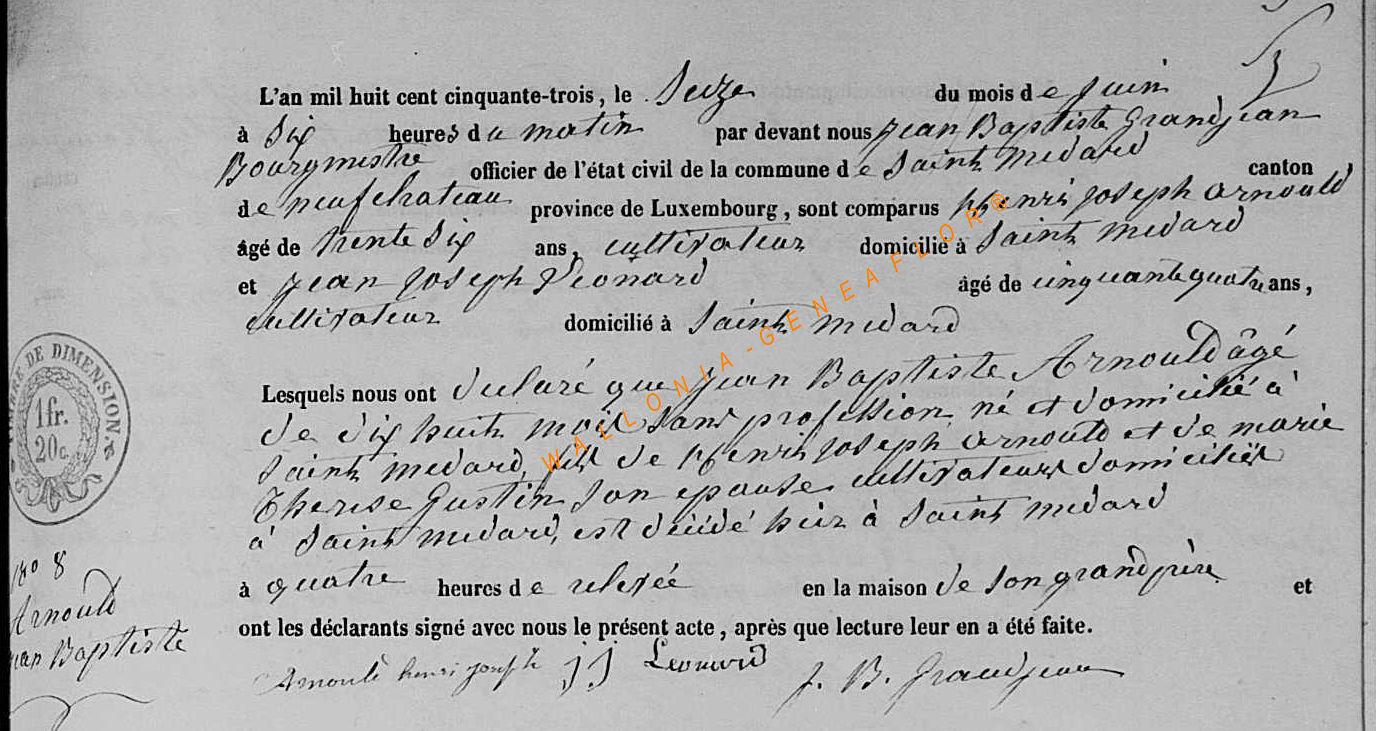 L'an mil huit cent cinquante-trois, le Seize du mois de juin
à Six heures du matin par devant nous jean Baptiste Grandjean
Bourgmestre officier de l'état civil de la commune de Saint medard canton
de neufchateau province de Luxembourg, sont comparus Henri joseph arnould
âgé de trente Six ans, cultivateur domicilié à Saint medard
et jean joseph Léonard âgé de cinquante quatre ans,
cultivateur domicilié à Saint medard
Lesquels nous ont declaré que jean Baptiste Arnould âgé
de dix huit mois sans profession, né et domicilié à
Saint medard, fils de Henri joseph arnould et de marie
Therese Gustin son epouse cultivateurs domiciliés
à Saint medard, est décédé hier à Saint medard
à quatre heures de relevée en la maison de son grand père et
ont les déclarants signé avec nous le présent acte, après que lecture leur en a été faite.
Arnould henri joseph jj Leonard J. B. Grandjean
DE DIMENSION
1 fr.
20 c.
No 8
Arnould
jean Baptiste
WALLONIA-GENEAFLOR®